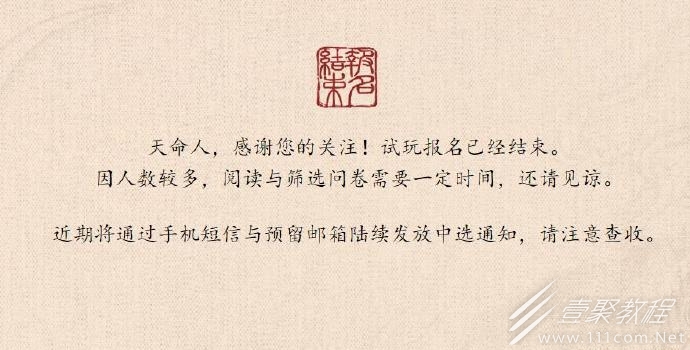 報名結束
天命人，感谢您的关注！试玩报名已经结束。
因人数较多，阅读与筛选问卷需要一定时间，还请见谅。
近期将通过手机短信与预留邮箱陆续发放中选通知，请注意查收。
壹聚教程
www.111com.Net